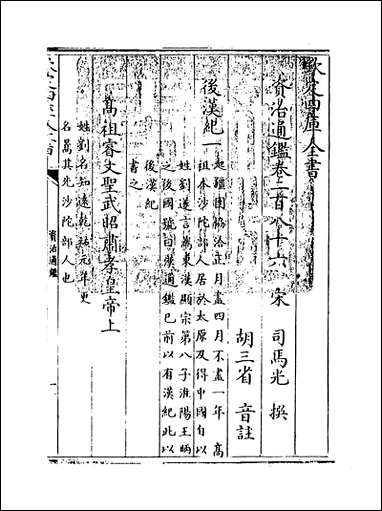 欽定四庫全書
資治通鑑卷二百八十六 宋 司馬光 撰
胡三省 音註
後漢紀一
起彊圉協洽正月盡四月不盡一年 高
祖本沙陀部人居於太原及得中國自以
姓劉遂言爲東漢顯宗第八子淮陽王昞
之後國號曰漢通鑑已前以有漢紀此以
後漢紀
書之
高祖睿文聖武昭肅孝皇帝上
姓劉名知遠乾祐元年更
名暠其先沙陀部人也
資治通鑑